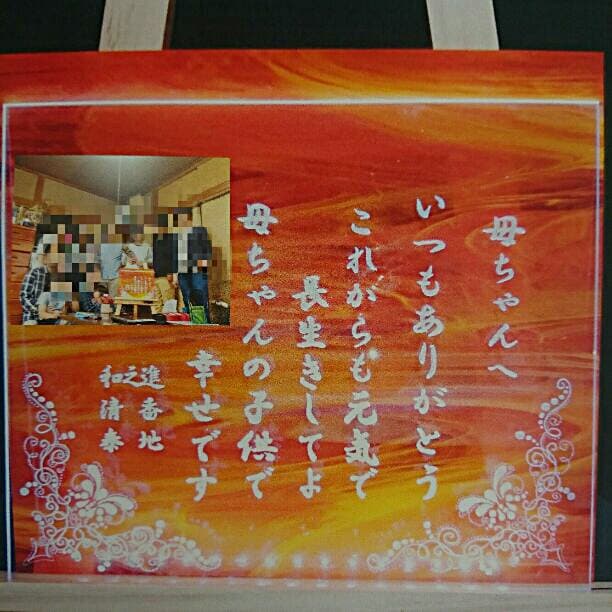 母ちゃんへ
いつもありがとう
これからも元気で
長生きしてよ
母ちゃんの子供で
幸せです
進 香 北
和之 清 泰